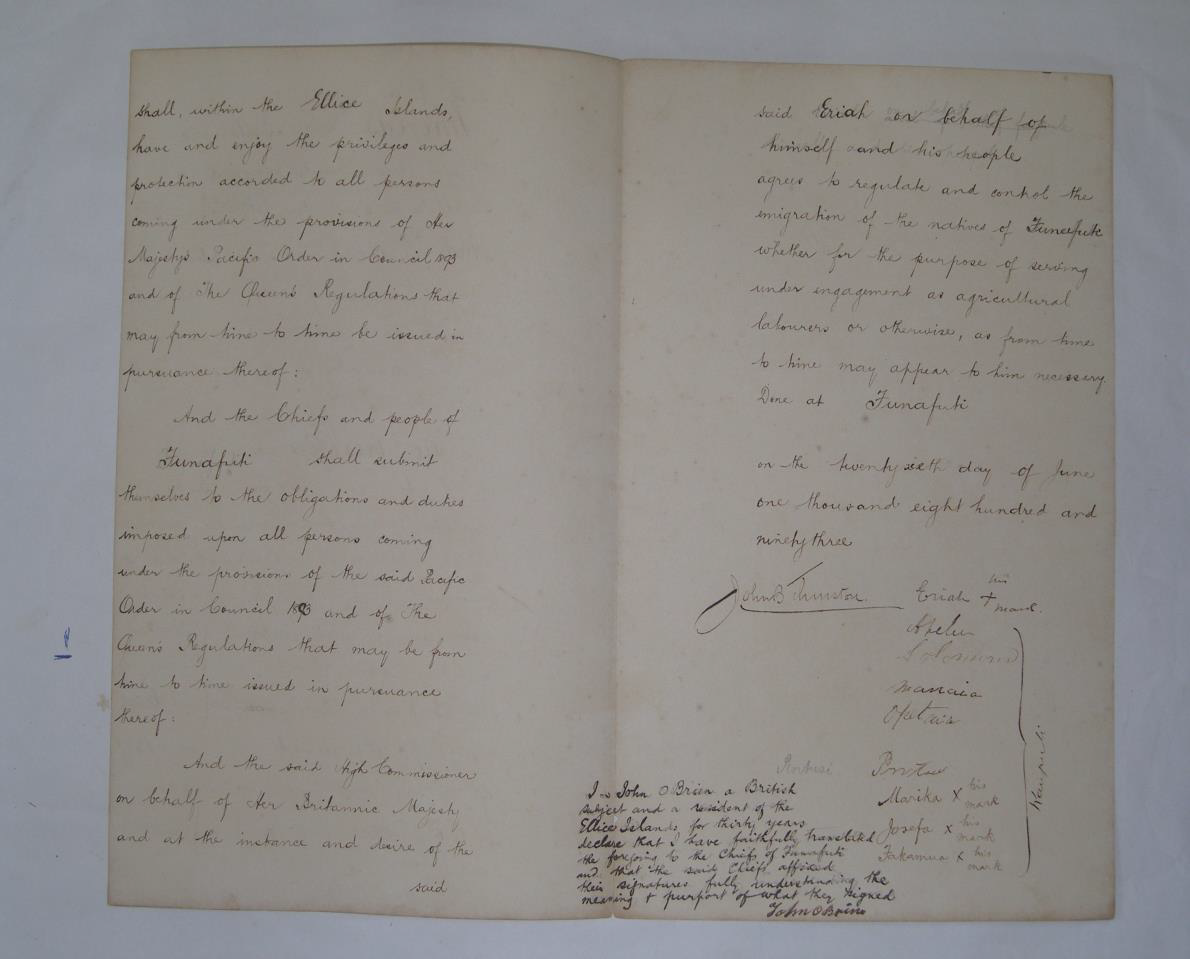 shall, within the Ellice Islands,
have and enjoy the privileges and
protection accorded to all persons
coming under the provisions of Her
Majesty's Pacific Order in Council 1893
and of The Queen's Regulations that
may from time to time be issued in
pursuance thereof:
And the Chiefs and people of
Funafuti shall submit
themselves to the obligations and duties
imposed upon all persons coming
under the provisions of the said Pacific
Order in Council 1893 and of The
Queen's Regulations that may be from
time to time issued in pursuance
thereof:
And the said High Commissioner
on behalf of Her Britannic Majesty
and at the instance and desire of the
said
said Eriah on behalf of
himself and his people
agrees to regulate and control the
emigration of the natives of Funafuti
whether for the purpose of serving
under engagement as agricultural
labourers or otherwise, as from time
to time may appear to him necessary.
Done at Funafuti
on the twenty sixth day of June
one thousand eight hundred and
ninety three
John B Thurston.
Eriah his + mark.
Apelu
Solomona
Manaia
Opetaia
Marika x his mark
Josefa x his mark
Takamua x his mark
I John O Brien a British
subject and a resident of the
Ellice Islands, for thirty years
declare that I have faithfully translated
the foregoing to the Chiefs of Funafuti
and that the said Chiefs affixed
their signatures fully understanding the
meaning & purport of what they signed
John O Brien